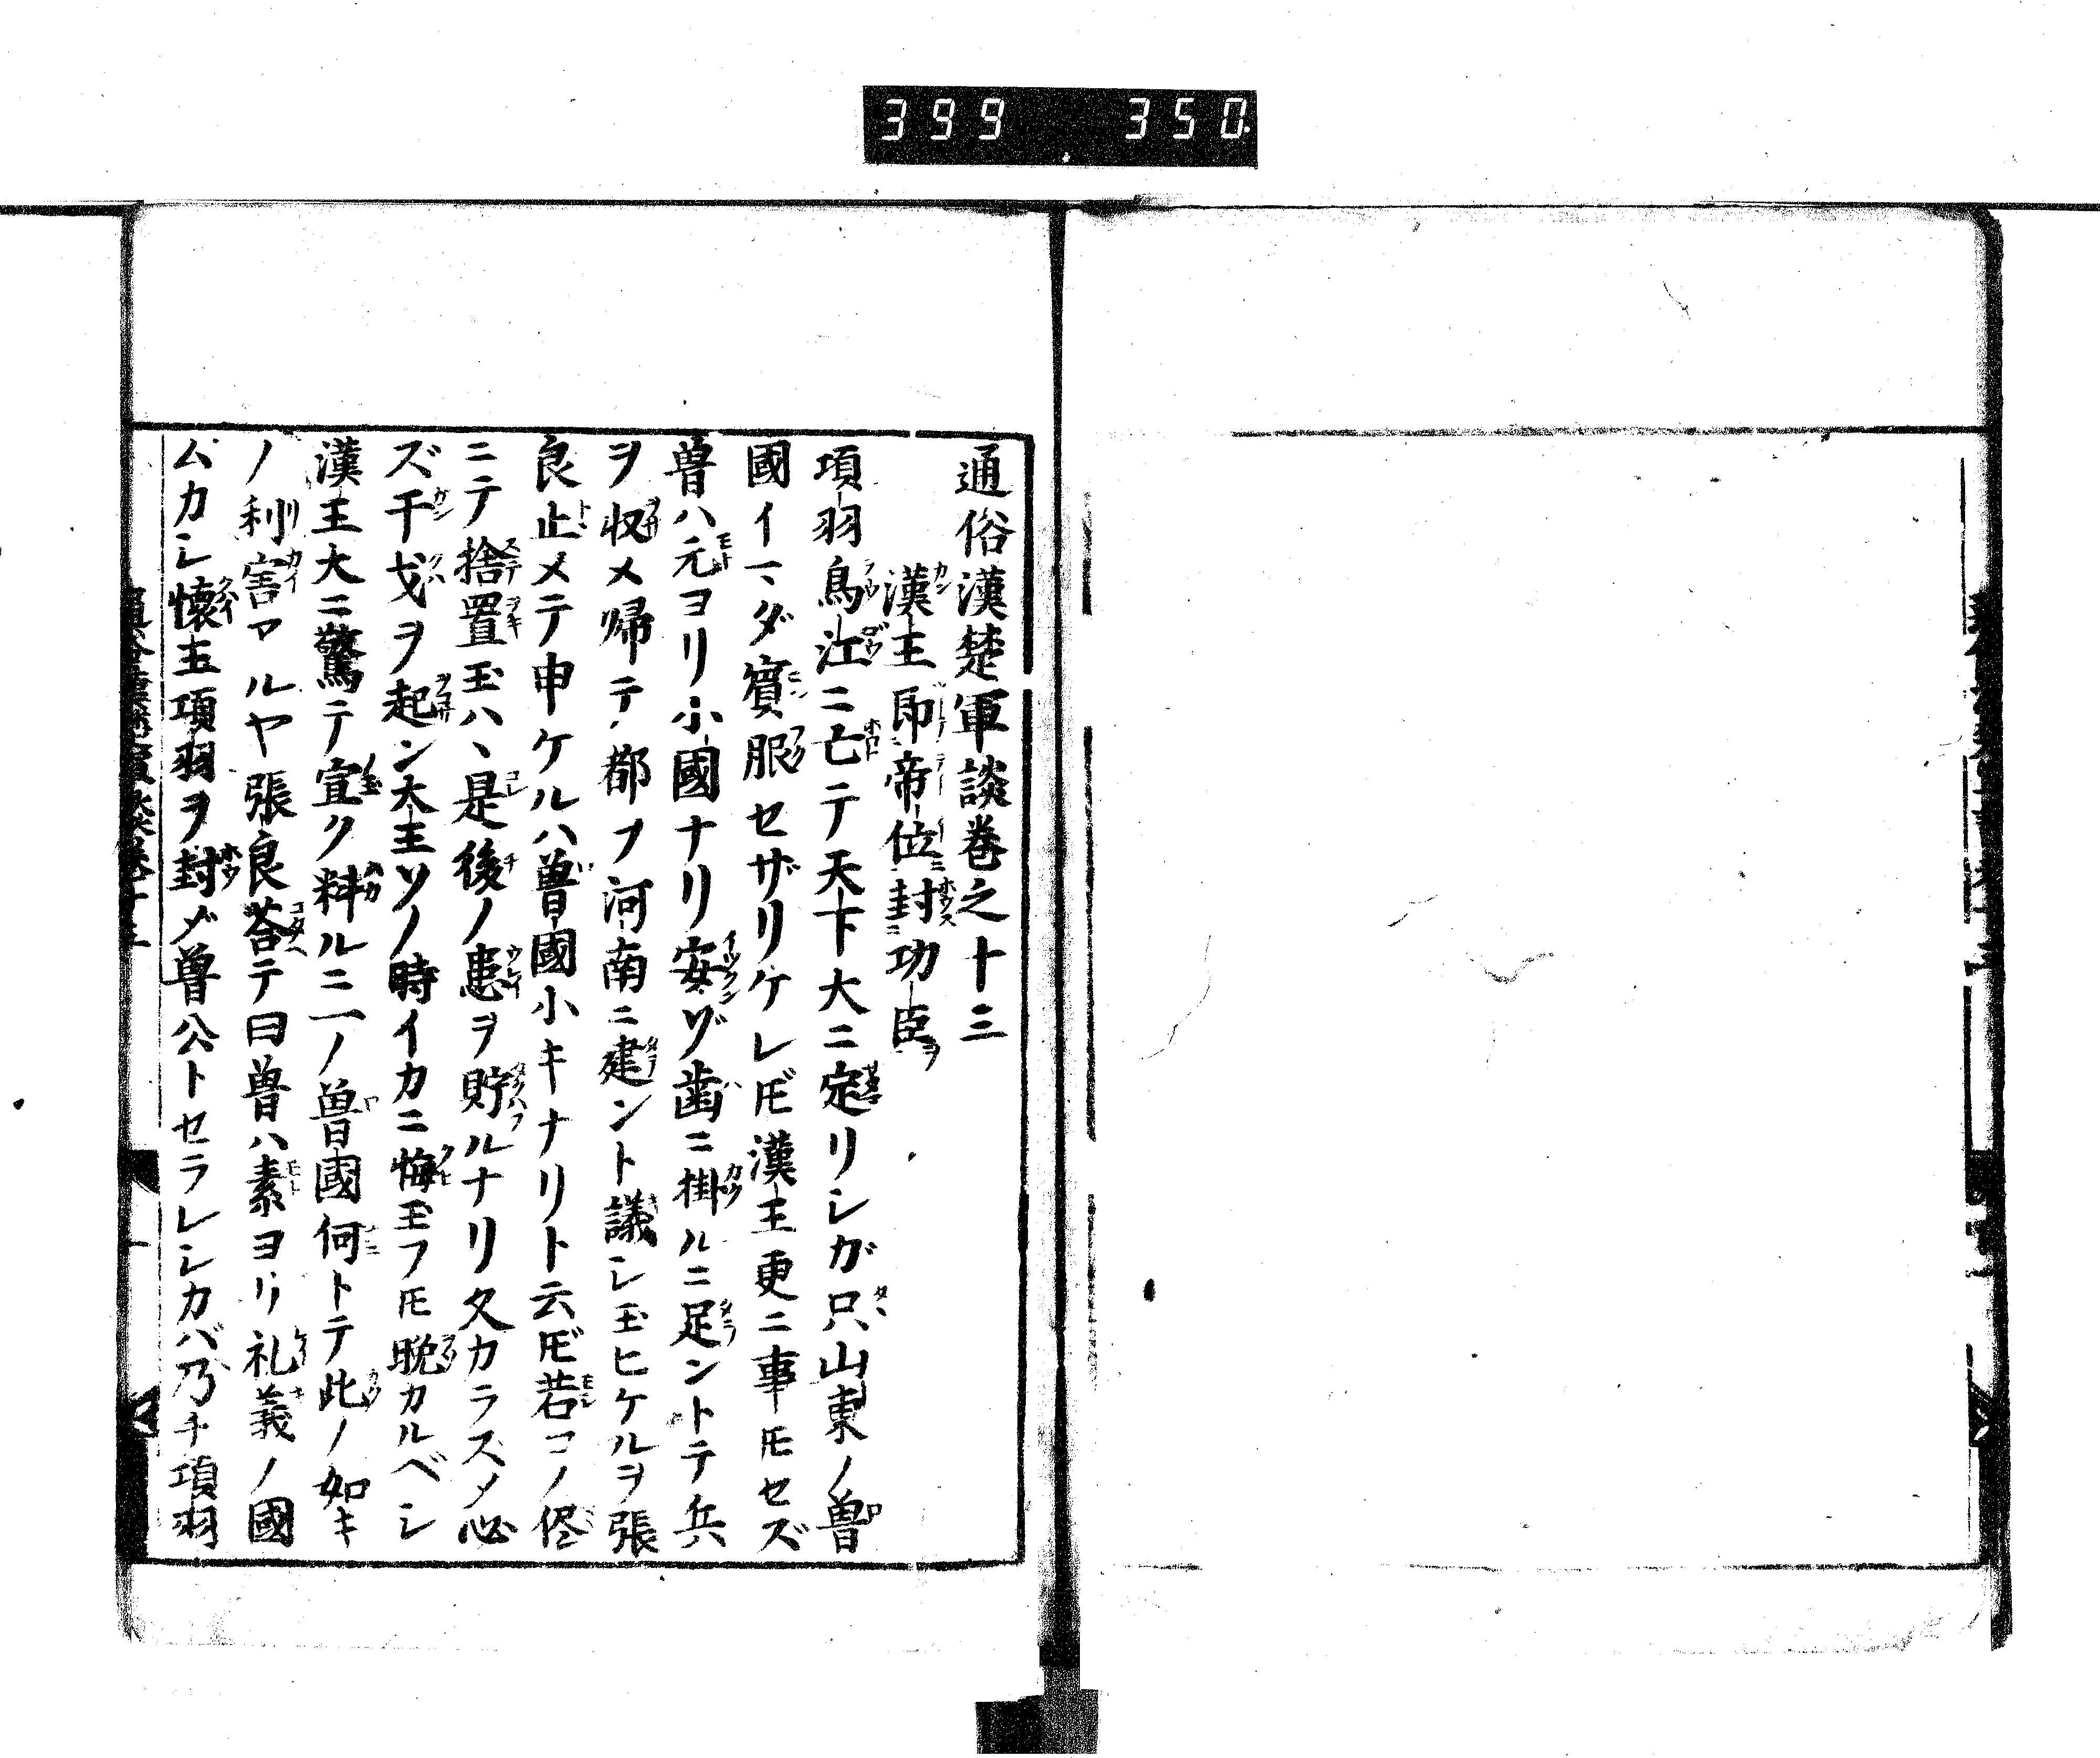 399 350
通俗漢楚軍談巻之十三
漢王即帝位封功臣ヲ
項羽烏江ニ亡テ天下大ニ定リシガ只山東ノ魯
國イマダ賓服セザリケレ𪜈漢王更ニ事𪜈セズ
魯ハ元ヨリ小國ナリ安ゾ歯ニ掛ルニ足ントテ兵
ヲ収メ帰テ都ヲ河南ニ建ント議シ玉ヒケルヲ張
良止メテ申ケルハ魯國小キナリト云𪜈若コノ侭
ニテ捨置玉ハヽ是後ノ患ヲ貯ルナリ久カラズメ必
ズ干戈ヲ起ン大王ソノ時イカニ悔玉フ𪜈晩カルベシ
漢王大ニ驚テ宣ク料ルニ一ノ魯國何トテ此ノ如キ
ノ利害アルヤ張良荅テ曰魯ハ素ヨリ礼義ノ國
ムカシ懐王項羽ヲ封ジ魯公トセラレシカバ乃チ項羽